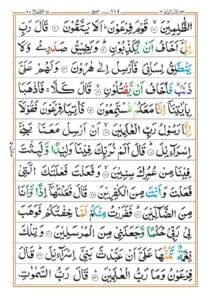 الظّٰلِمِیْنَ ۙ قَوْمَ فِرْعَوْنَ ؕ اَلَا یَتَّقُوْنَ قَالَ رَبِّ
اِنِّیْۤ اَخَافُ اَنْ یُّكَذِّبُوْنِ ؕ وَ یَضِیْقُ صَدْرِیْ وَ لَا
یَنْطَلِقُ لِسَانِیْ فَاَرْسِلْ اِلٰى هٰرُوْنَ وَ لَهُمْ عَلَیَّ
ذَنْۢبٌ فَاَخَافُ اَنْ یَّقْتُلُوْنِ ۚ قَالَ كَلَّا ۚ فَاذْهَبَا
بِاٰیٰتِنَاۤ اِنَّا مَعَكُمْ مُّسْتَمِعُوْنَ فَاْتِیَا فِرْعَوْنَ فَقُوْلَاۤ
اِنَّا رَسُوْلُ رَبِّ الْعٰلَمِیْنَ ۙ اَنْ اَرْسِلْ مَعَنَا بَنِیْۤ
اِسْرَآءِیْلَ ؕ قَالَ اَلَمْ نُرَبِّكَ فِیْنَا وَلِیْدًا وَّ لَبِثْتَ
فِیْنَا مِنْ عُمُرِكَ سِنِیْنَ ۙ وَ فَعَلْتَ فَعْلَتَكَ الَّتِیْ
فَعَلْتَ وَ اَنْتَ مِنَ الْكٰفِرِیْنَ قَالَ فَعَلْتُهَاۤ اِذًا وَّ اَنَا
مِنَ الضَّآلِّیْنَ ؕ فَفَرَرْتُ مِنْكُمْ لَمَّا خِفْتُكُمْ فَوَهَبَ
لِیْ رَبِّیْ حُكْمًا وَّ جَعَلَنِیْ مِنَ الْمُرْسَلِیْنَ وَ تِلْكَ
نِعْمَةٌ تَمُنُّهَا عَلَیَّ اَنْ عَبَّدْتَّ بَنِیْۤ اِسْرَآءِیْلَ ؕ قَالَ
فِرْعَوْنُ وَ مَا رَبُّ الْعٰلَمِیْنَ ؕ قَالَ رَبُّ السَّمٰوٰتِ